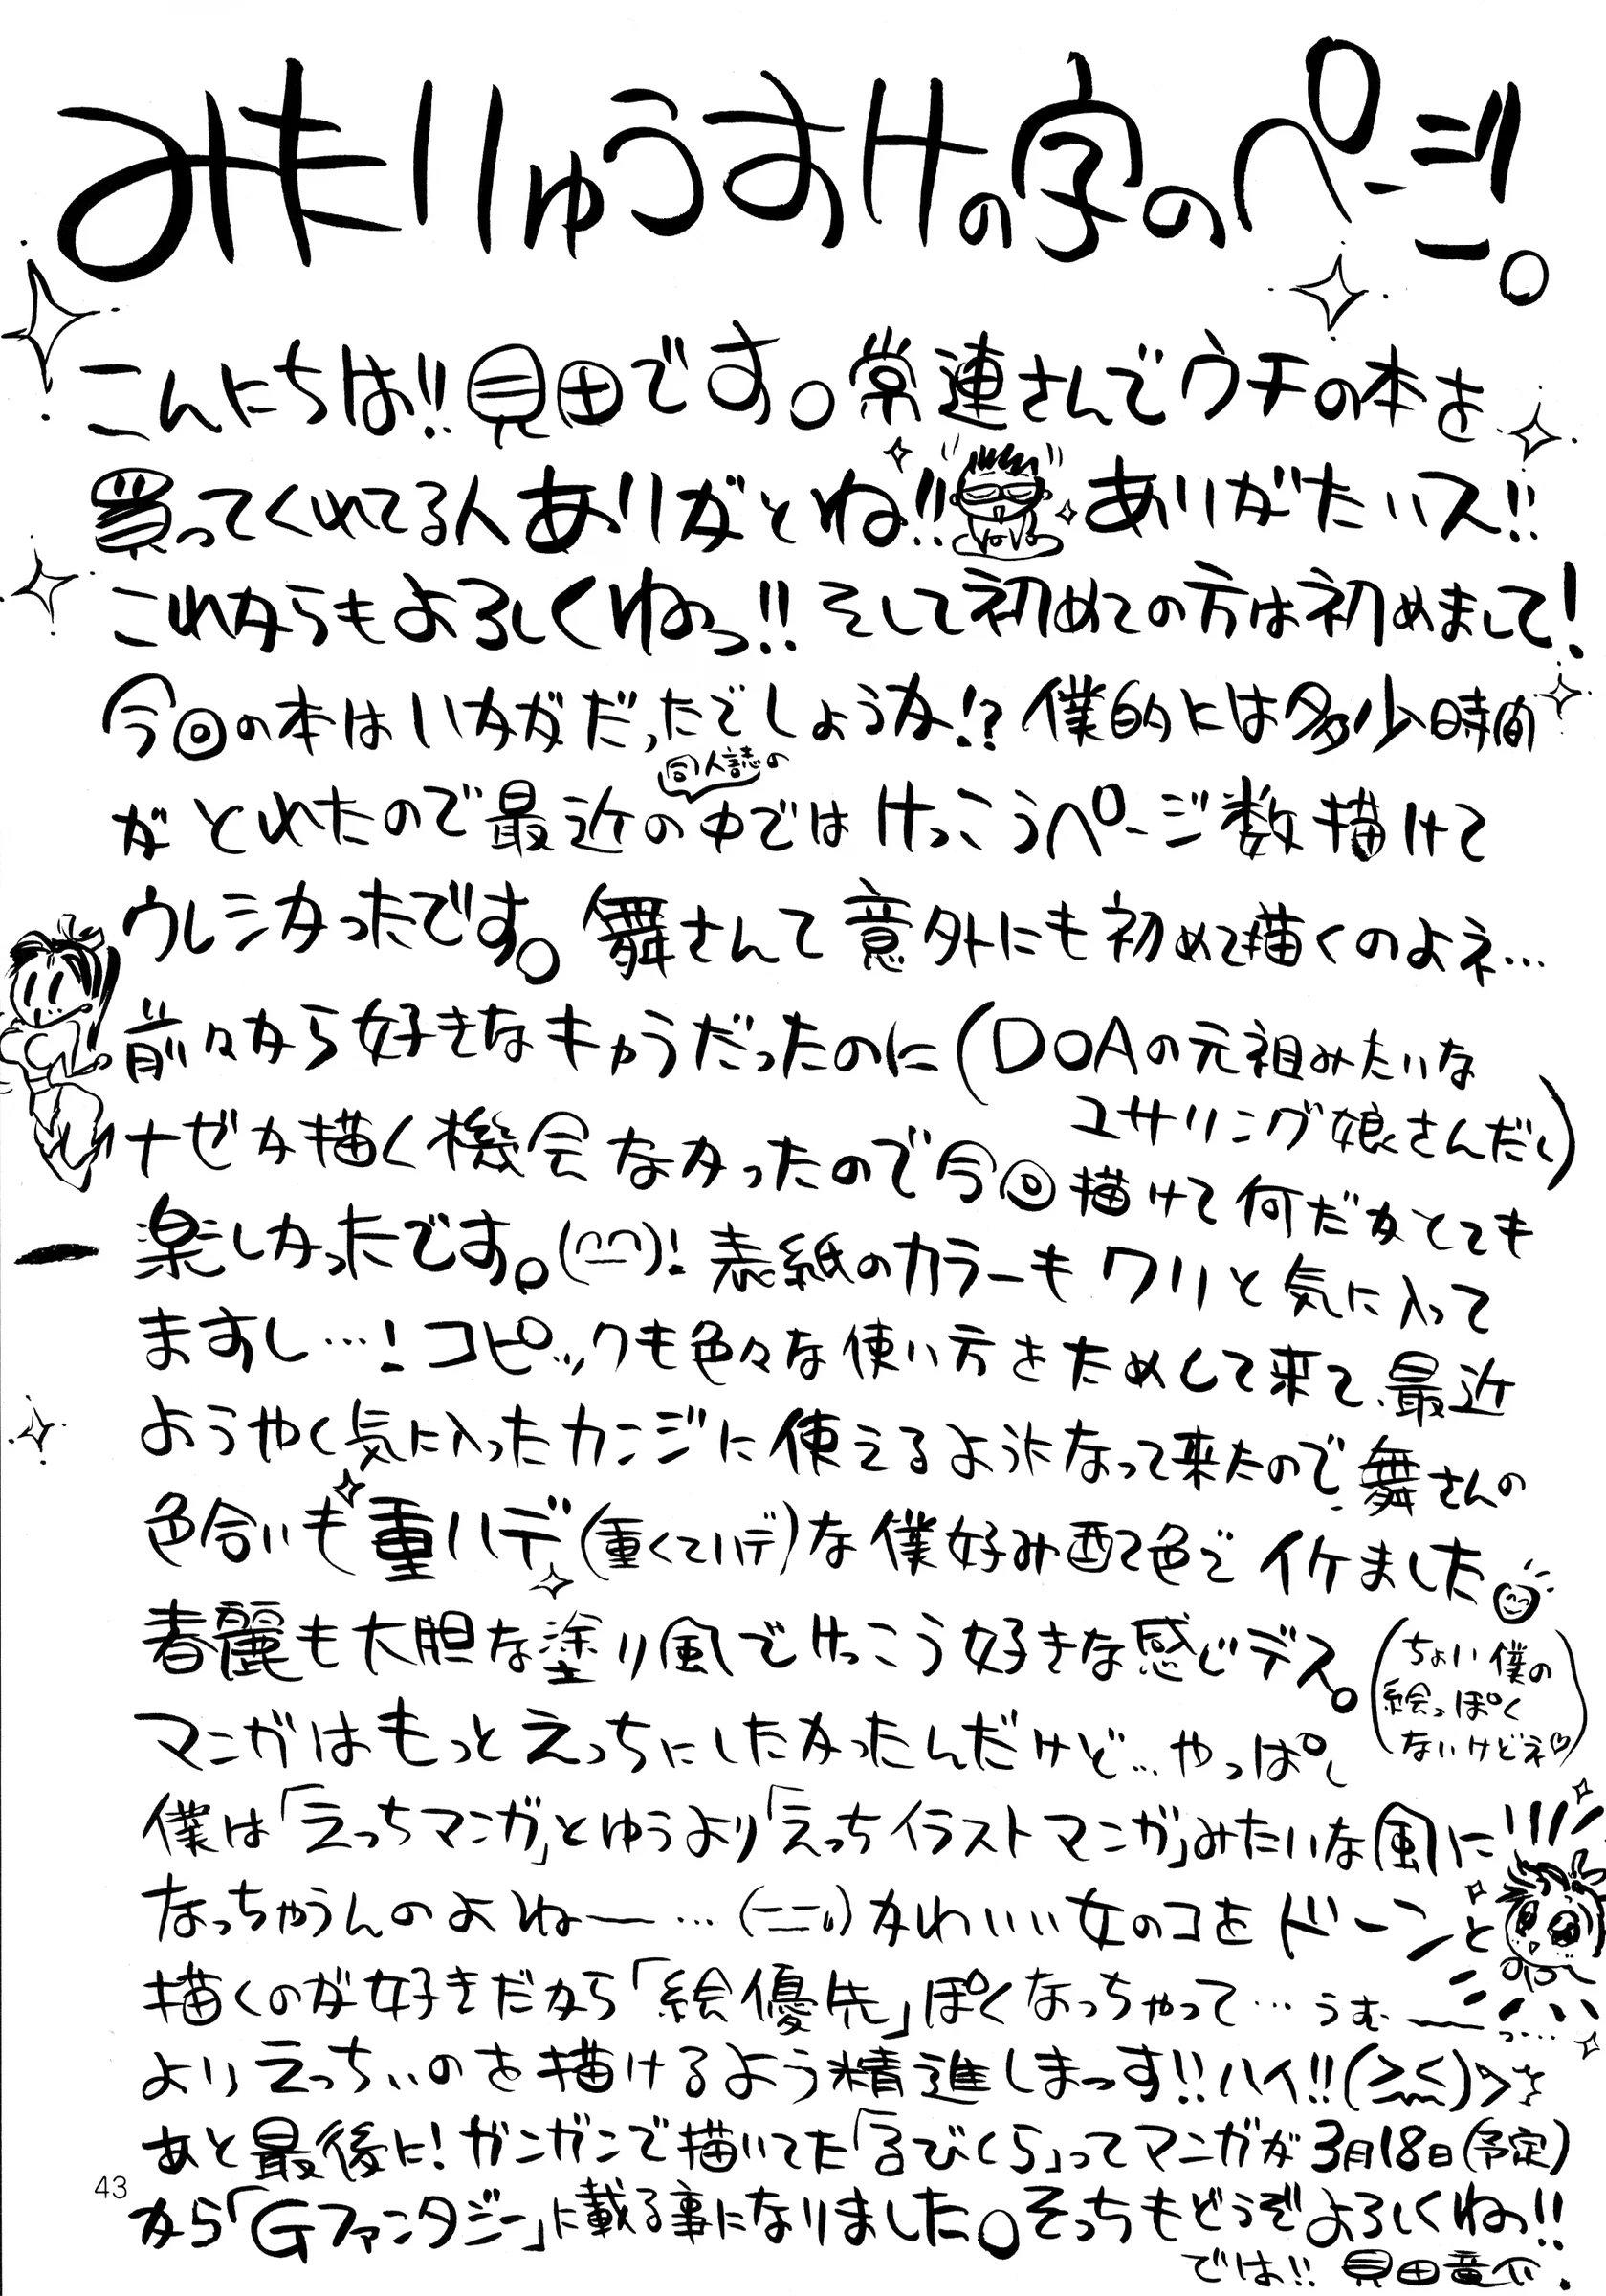 みたりゅうすけの字のページ。
こんにちは!!見田です。常連さんでウチの本を
買ってくれてる人ありがとね!!ありがたいス!!
これからもよろしくねっ!!そして初めての方は初めまして!
今回の本はいかがだったでしょうか!?僕的には多少時間
がとれたので最近の中ではけっこうページ数描けて
同人誌の
ウレシかったです。舞さんて意外にも初めて描くのよネ…
前々から好きなキャラだったのに(DOAの元祖みたいな
ユサリング娘さんだし)
ナゼか描く機会なかったので今回描けて何だかとても
楽しかったです。(⌒⌒)!表紙のカラーもワリと気に入って
ますし…!コピックも色々な使い方をためして来て、最近
ようやく気に入ったカンジに使えるようになって来たので、舞さんの
色合いも重ハデ(重くてハデ)な僕好み配色でイケました
春麗も大胆な塗り風でけっこう好きな感じデス。
(ちょい僕の
絵っぽく
ないけどネ♡)
マンガはもっとえっちにしたかったんだけど…やっぱし
僕は「えっちマンガ」とゆうより「えっちイラストマンガ」みたいな風に
なっちゃうんのよねー…(ーニー;)かわいい女のコをドーンと
描くのが好きだから「絵優先」ぽくなっちゃって…うむ──っ…
よりえっちぃのを描けるよう精進しまっす!!ハイ!!(>﹏<)ゝ
あと最後に!ガンガンで描いてた「るびくら」ってマンガが3月18日(予定)
から「Gファンタジー」に載る事になりました。そっちもどうぞよろしくねっ!!
では!! 見田竜介.
43